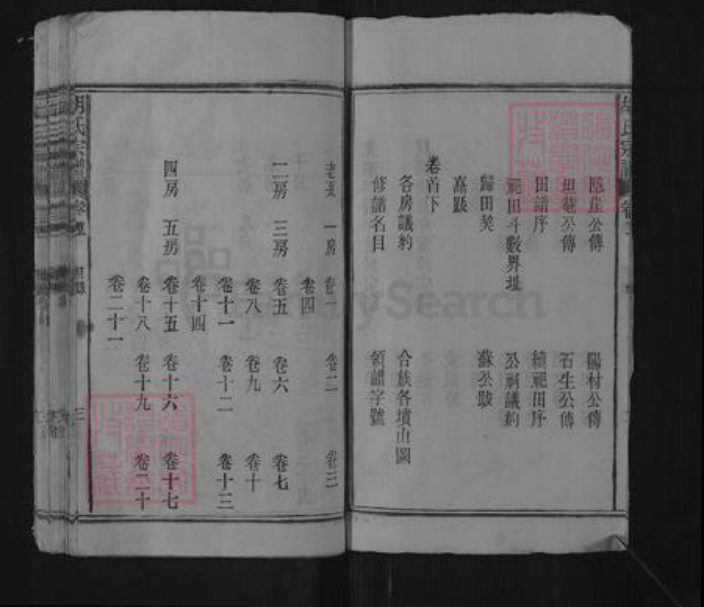 胡氏宗譜
隱崖公傳　陽村公傳
坦菴公傳　石生公傳
田譜序　續祀田序
祀田斗數界址　公祠議約
歸田契　蘇公跋
嘉跋
卷首下
各房議約　合族各墳山圖
修譜名目　領譜字號
一房　卷一　卷二　卷三
卷四
二房　三房　卷五　卷六　卷七
卷八　卷九　卷十
卷十一　卷十二　卷十三
卷十四
四房　五房　卷十五　卷十六　卷十七
卷十八　卷十九　卷二十
卷二十一
胡氏宗譜
三
FamilySearch